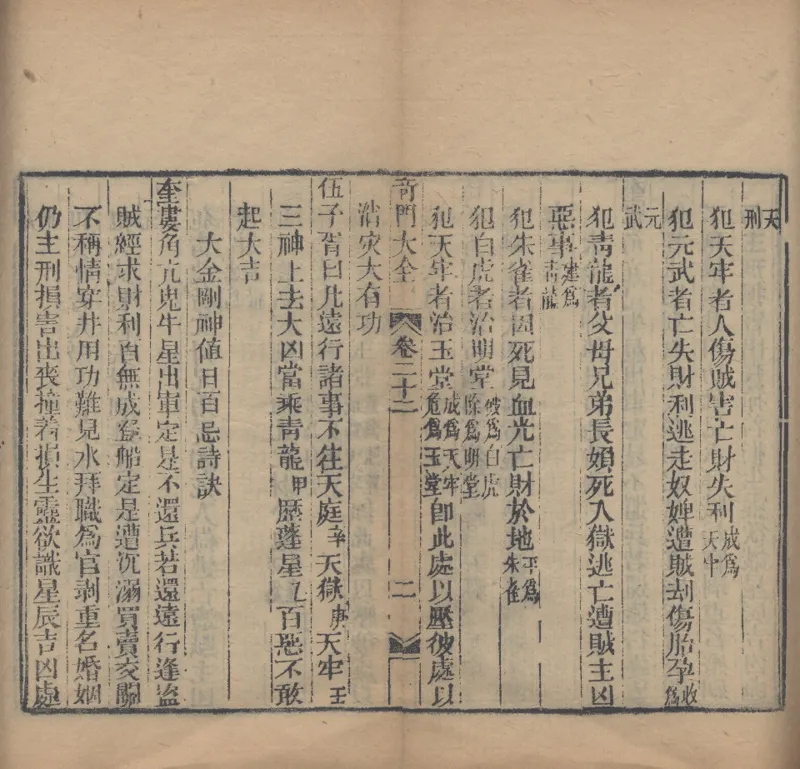 天刑
犯天牢者人傷賊害亡財失利成爲天牢
犯元武者亡失財利逃走奴婢遭賊刼傷胎孕收爲
元武
犯靑龍者父母兄弟長婦死入獄逃亡遭賊主凶
惡事建爲靑龍
犯朱雀者因死見血光亡財於地平爲朱雀
犯白虎者治明堂破爲白虎除爲明堂
犯天牢者治玉堂成爲天牢危爲玉堂卽此處以壓彼處以
奇門大全 卷二十二 二
消災大有功
伍子胥曰凡遠行諸事不往天庭辛天獄庚天牢壬
三神上去大凶當乘靑龍甲歷蓬星乙百惡不敢
起大吉
大金剛神值日百忌詩訣
奎婁角亢鬼牛星出車定是不還兵若還遠行逢盜
賊經求財利百無成登船定是遭沉溺買賣交關
不稱情穿井用功難見水拜職爲官剥重名婚姻
仍主刑損害出喪撞着損生靈欲識星辰吉凶處